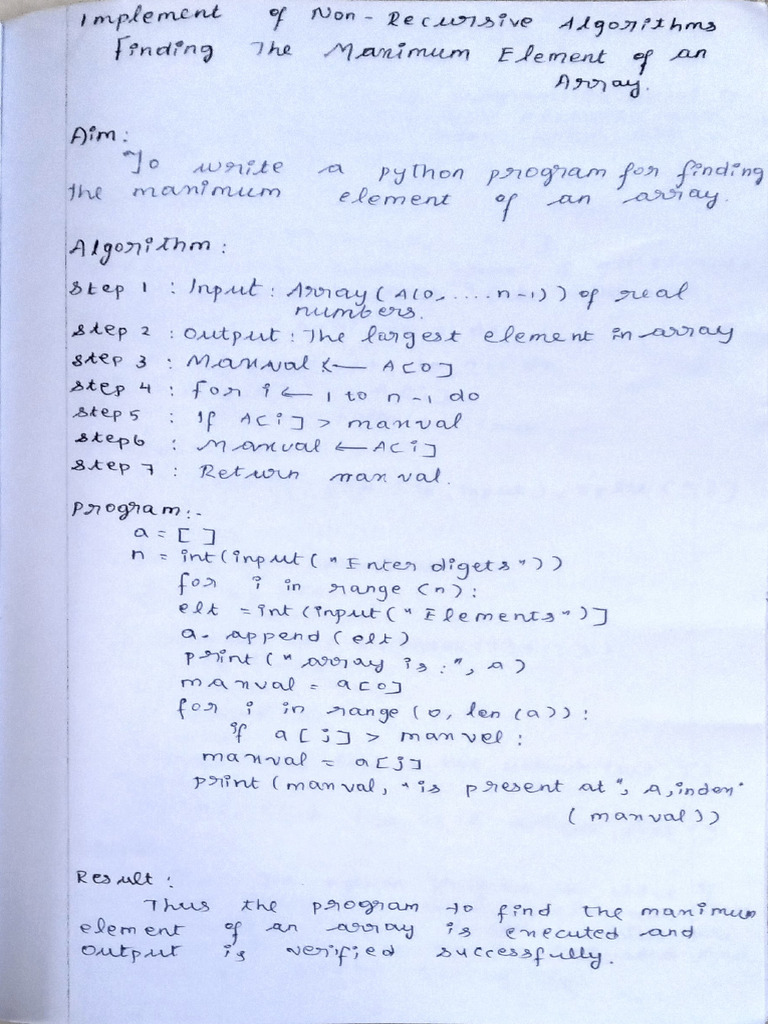 Implement of Non-Recursive Algorithms
Finding The Maximum Element of an
Array.
Aim:
To write a python program for finding
the maximum element of an array.
Algorithm:
Step 1 : Input : Array (A(0, ....n-1)) of real
numbers.
Step 2 : Output : The largest element in array
Step 3 : Maxval ← A[0]
Step 4 : for i ← 1 to n-1 do
Step 5 : If A[i] > maxval
Step 6 : Maxval ← A[i]
Step 7 : Return maxval.
Program:-
a = [ ]
n = int(input("Enter digets"))
for i in range (n):
elt = int (input(" Elements")]
a. append (elt)
print (" array is :", a)
maxval = a[0]
for i in range (0, len (a)):
if a[j] > maxvel:
maxval = a[j]
print (maxval, "is present at", A,index
(maxval))
Result:
Thus the program to find the maximum
element of an array is executed and
output is verified successfully.